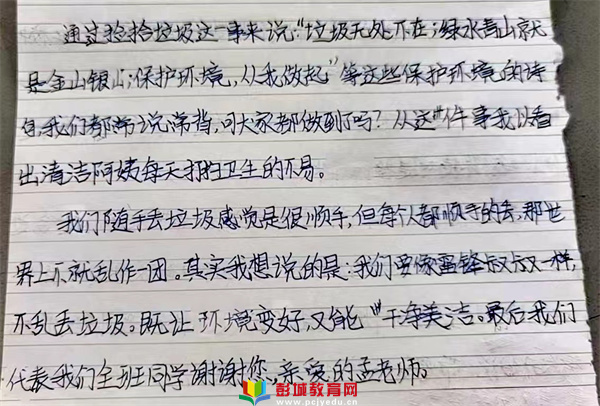 通过捡拾垃圾这一事来说“垃圾无处不在;绿水青山就
是金山银山;保护环境,从我做起”等这些保护环境的诗
句,我们都常说常背,可大家都做到了吗?从这件事我以看
出清洁阿姨每天打扫卫生的不易。
我们随手丢垃圾感觉是很顺手,但每个人都顺手的丢,那世
界上不就乱作一团。其实我想说的是:我们要像雷锋叔叔一样,
不乱丢垃圾。既让环境变好,又能干净美洁。最后我们
代表我们全班同学谢谢您,亲爱的孟老师。
彭城教育网
www.pcjyedu.cn